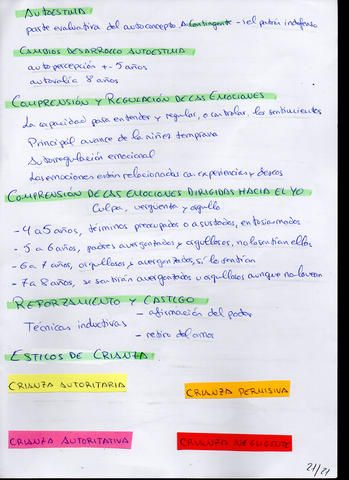 AUTOESTIMA
parte evaluativa del autoconcepto. Contingente - el patrón indefenso
CAMBIOS DESARROLLO AUTOESTIMA
autopercepción +- 5 años
autovalía 8 años
COMPRENSIÓN Y REGULACIÓN DE LAS EMOCIONES
La capacidad para entender y regular, o controlar, los sentimientos
Principal avance de la niñez temprana
Autorregulación emocional
Las emociones están relacionadas con experiencias y deseos
COMPRENSIÓN DE LAS EMOCIONES DIRIGIDAS HACIA EL YO
Culpa, vergüenza y orgullo
- 4 a 5 años, términos preocupados o asustados, entusiasmados
- 5 a 6 años, padres avergonzados y orgullosos, no lo sentían ellos
- 6 a 7 años, orgullosos y avergonzados, sí lo sentían
- 7 a 8 años, se sentirán avergonzados u orgullosos aunque no lo vean
REFORZAMIENTO Y CASTIGO
Técnicas inductivas
- afirmación del poder
- retiro del amor
ESTILOS DE CRIANZA
CRIANZA AUTORITARIA
CRIANZA PERMISIVA
CRIANZA AUTORITATIVA
CRIANZA NEGLIGENTE
21/21